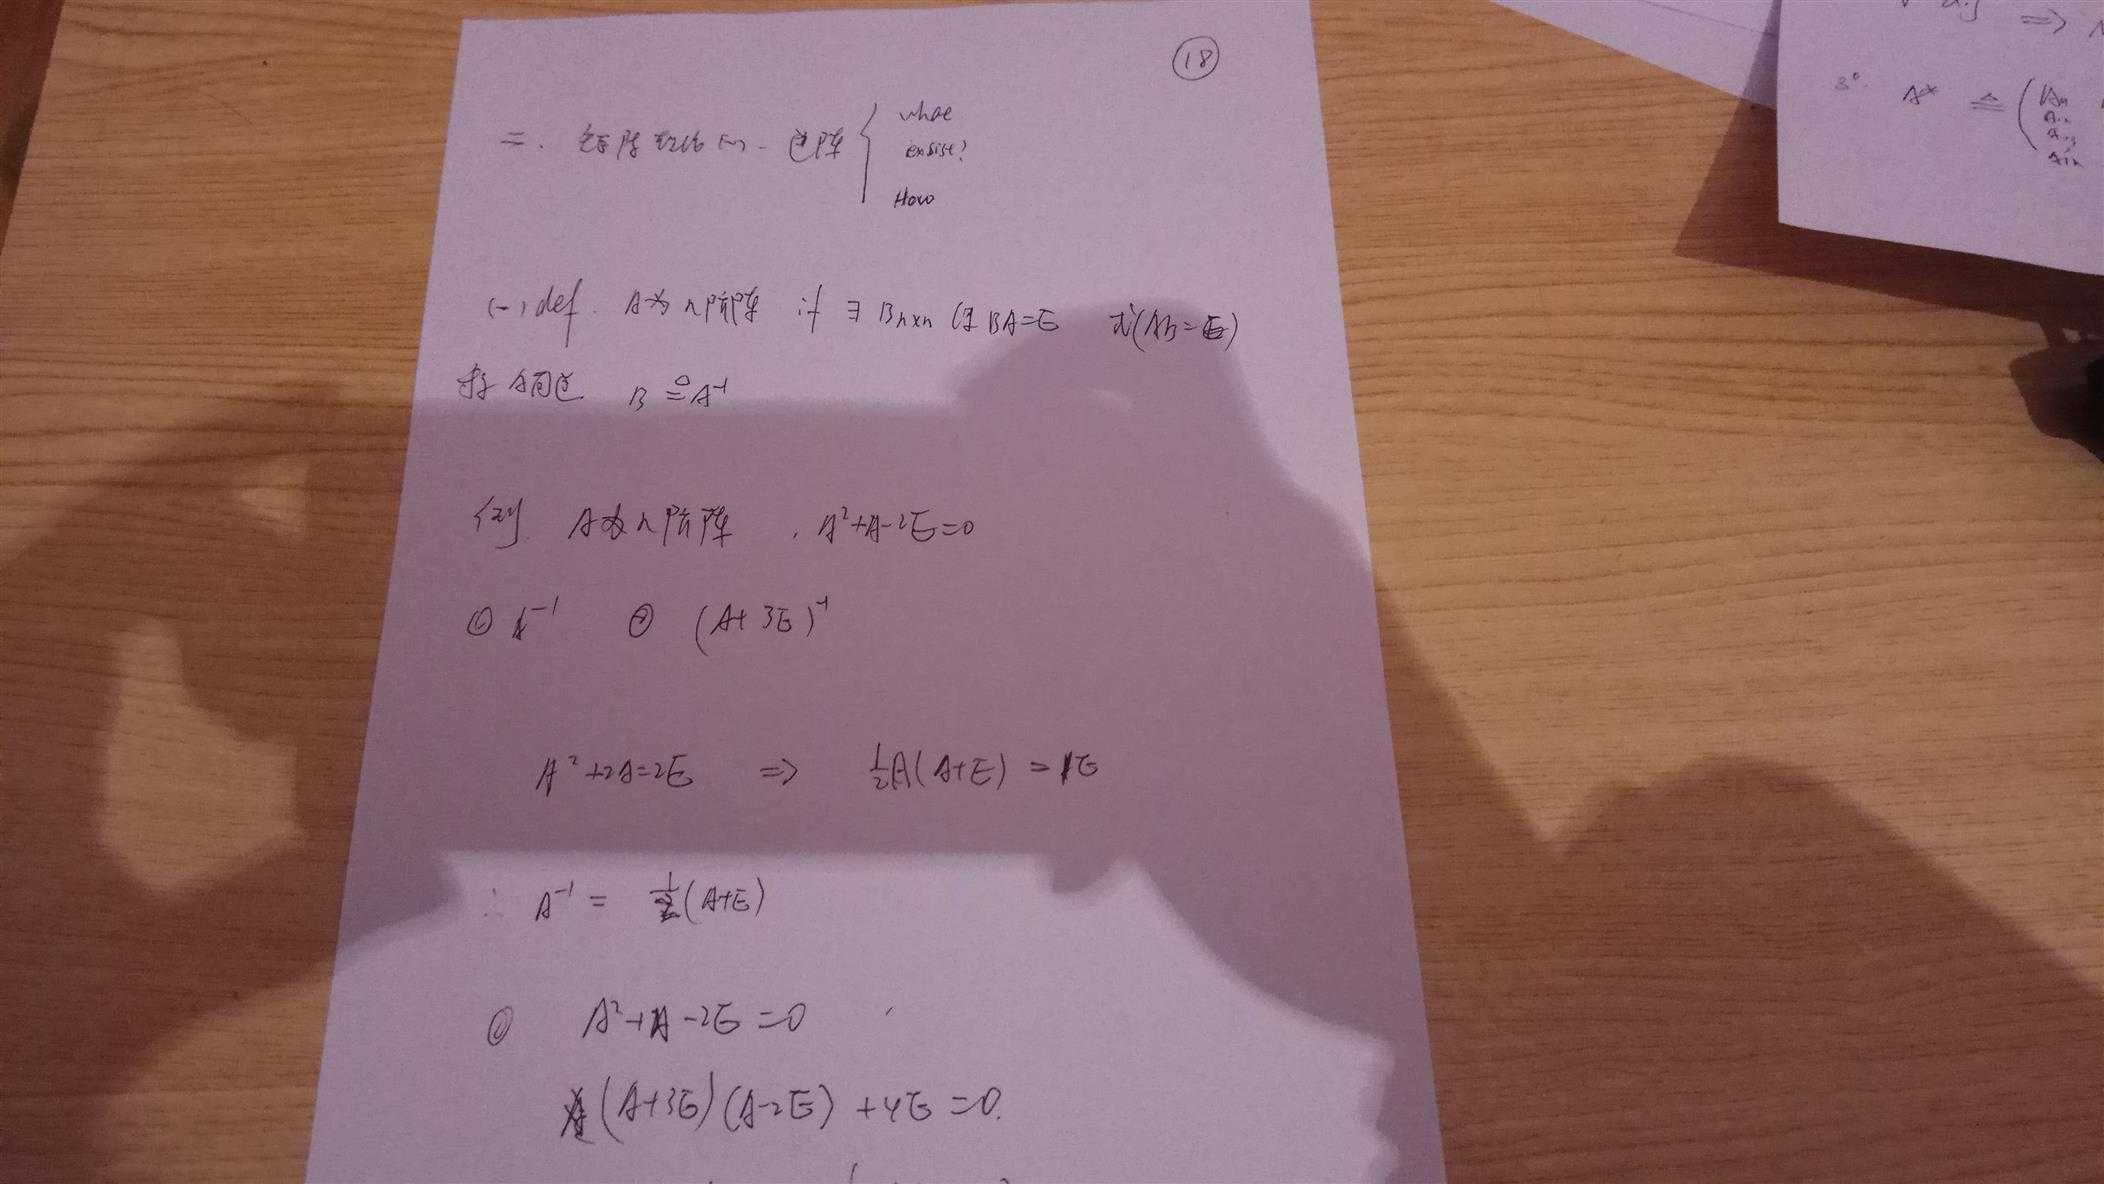 18
二. 矩阵理论(一)-逆阵 { what
exsist?
How
(一) def. A为n阶阵 if ∃ Bn×n 使 BA=E 或(AB=E)
称A可逆 B ≜ A⁻¹
例. A为n阶阵, A²+A-2E=0
① A⁻¹ ② (A+3E)⁻¹
A²+2A=2E ⇒ ½A(A+E) = E
∴ A⁻¹ = ½(A+E)
② A²+A-2E=0
(A+3E)(A-2E)+4E=0.
⇒
3° A* ≜ (A11
A12
A13
A1n